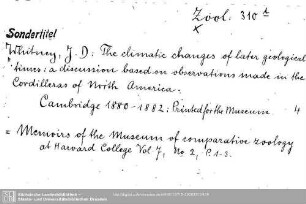 Zool. 310 t
x
Sondertitel
Whitney, J. D.: The climatic changes of later geological
times: a discussion based on observations made in the
Cordilleras of North America.
Cambridge 1880-1882. Printed for the Museum. 4
= Memoirs of the Museum of comparative zoology
at Harvard College Vol 7, No 2, P. 1-3.